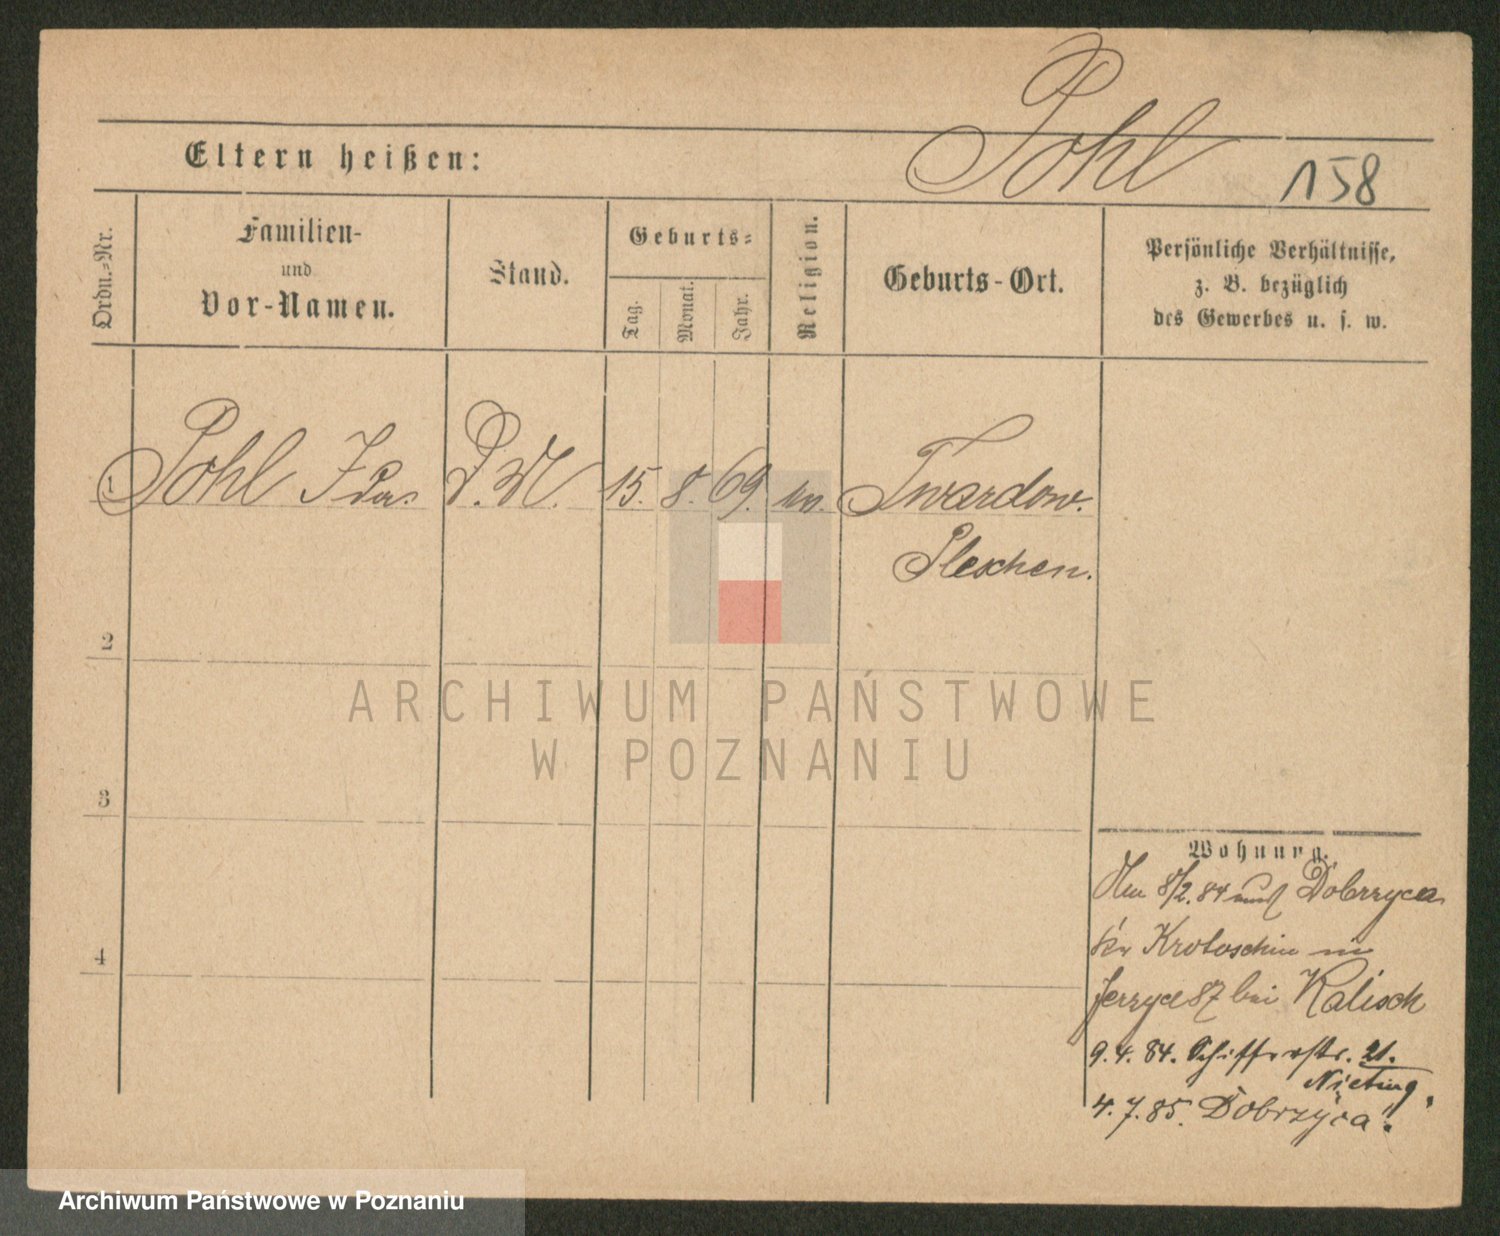 Pohl
Eltern heißen:
158
Ordn.-Nr.
Familien-
und
Vor-Namen.
Stand.
Geburts-
Tag.
Monat.
Jahr.
Religion.
Geburts-Ort.
Persönliche Verhältnisse,
z. B. bezüglich
des Gewerbes u. s. w.
1 Pohl Ida. D. M. 15. 8. 69. Twardow.
Pleschen.
2
3
4
ARCHIWUM PAŃSTWOWE
W POZNANIU
Wohnung.
8/2. 84 Dobrzyca
Kr Krotoschin in
Jerzyce 87 bei Kalisch
9. 4. 84. Schifferstr. 21.
4. 7. 85. Dobrzyca.
Archiwum Państwowe w Poznaniu